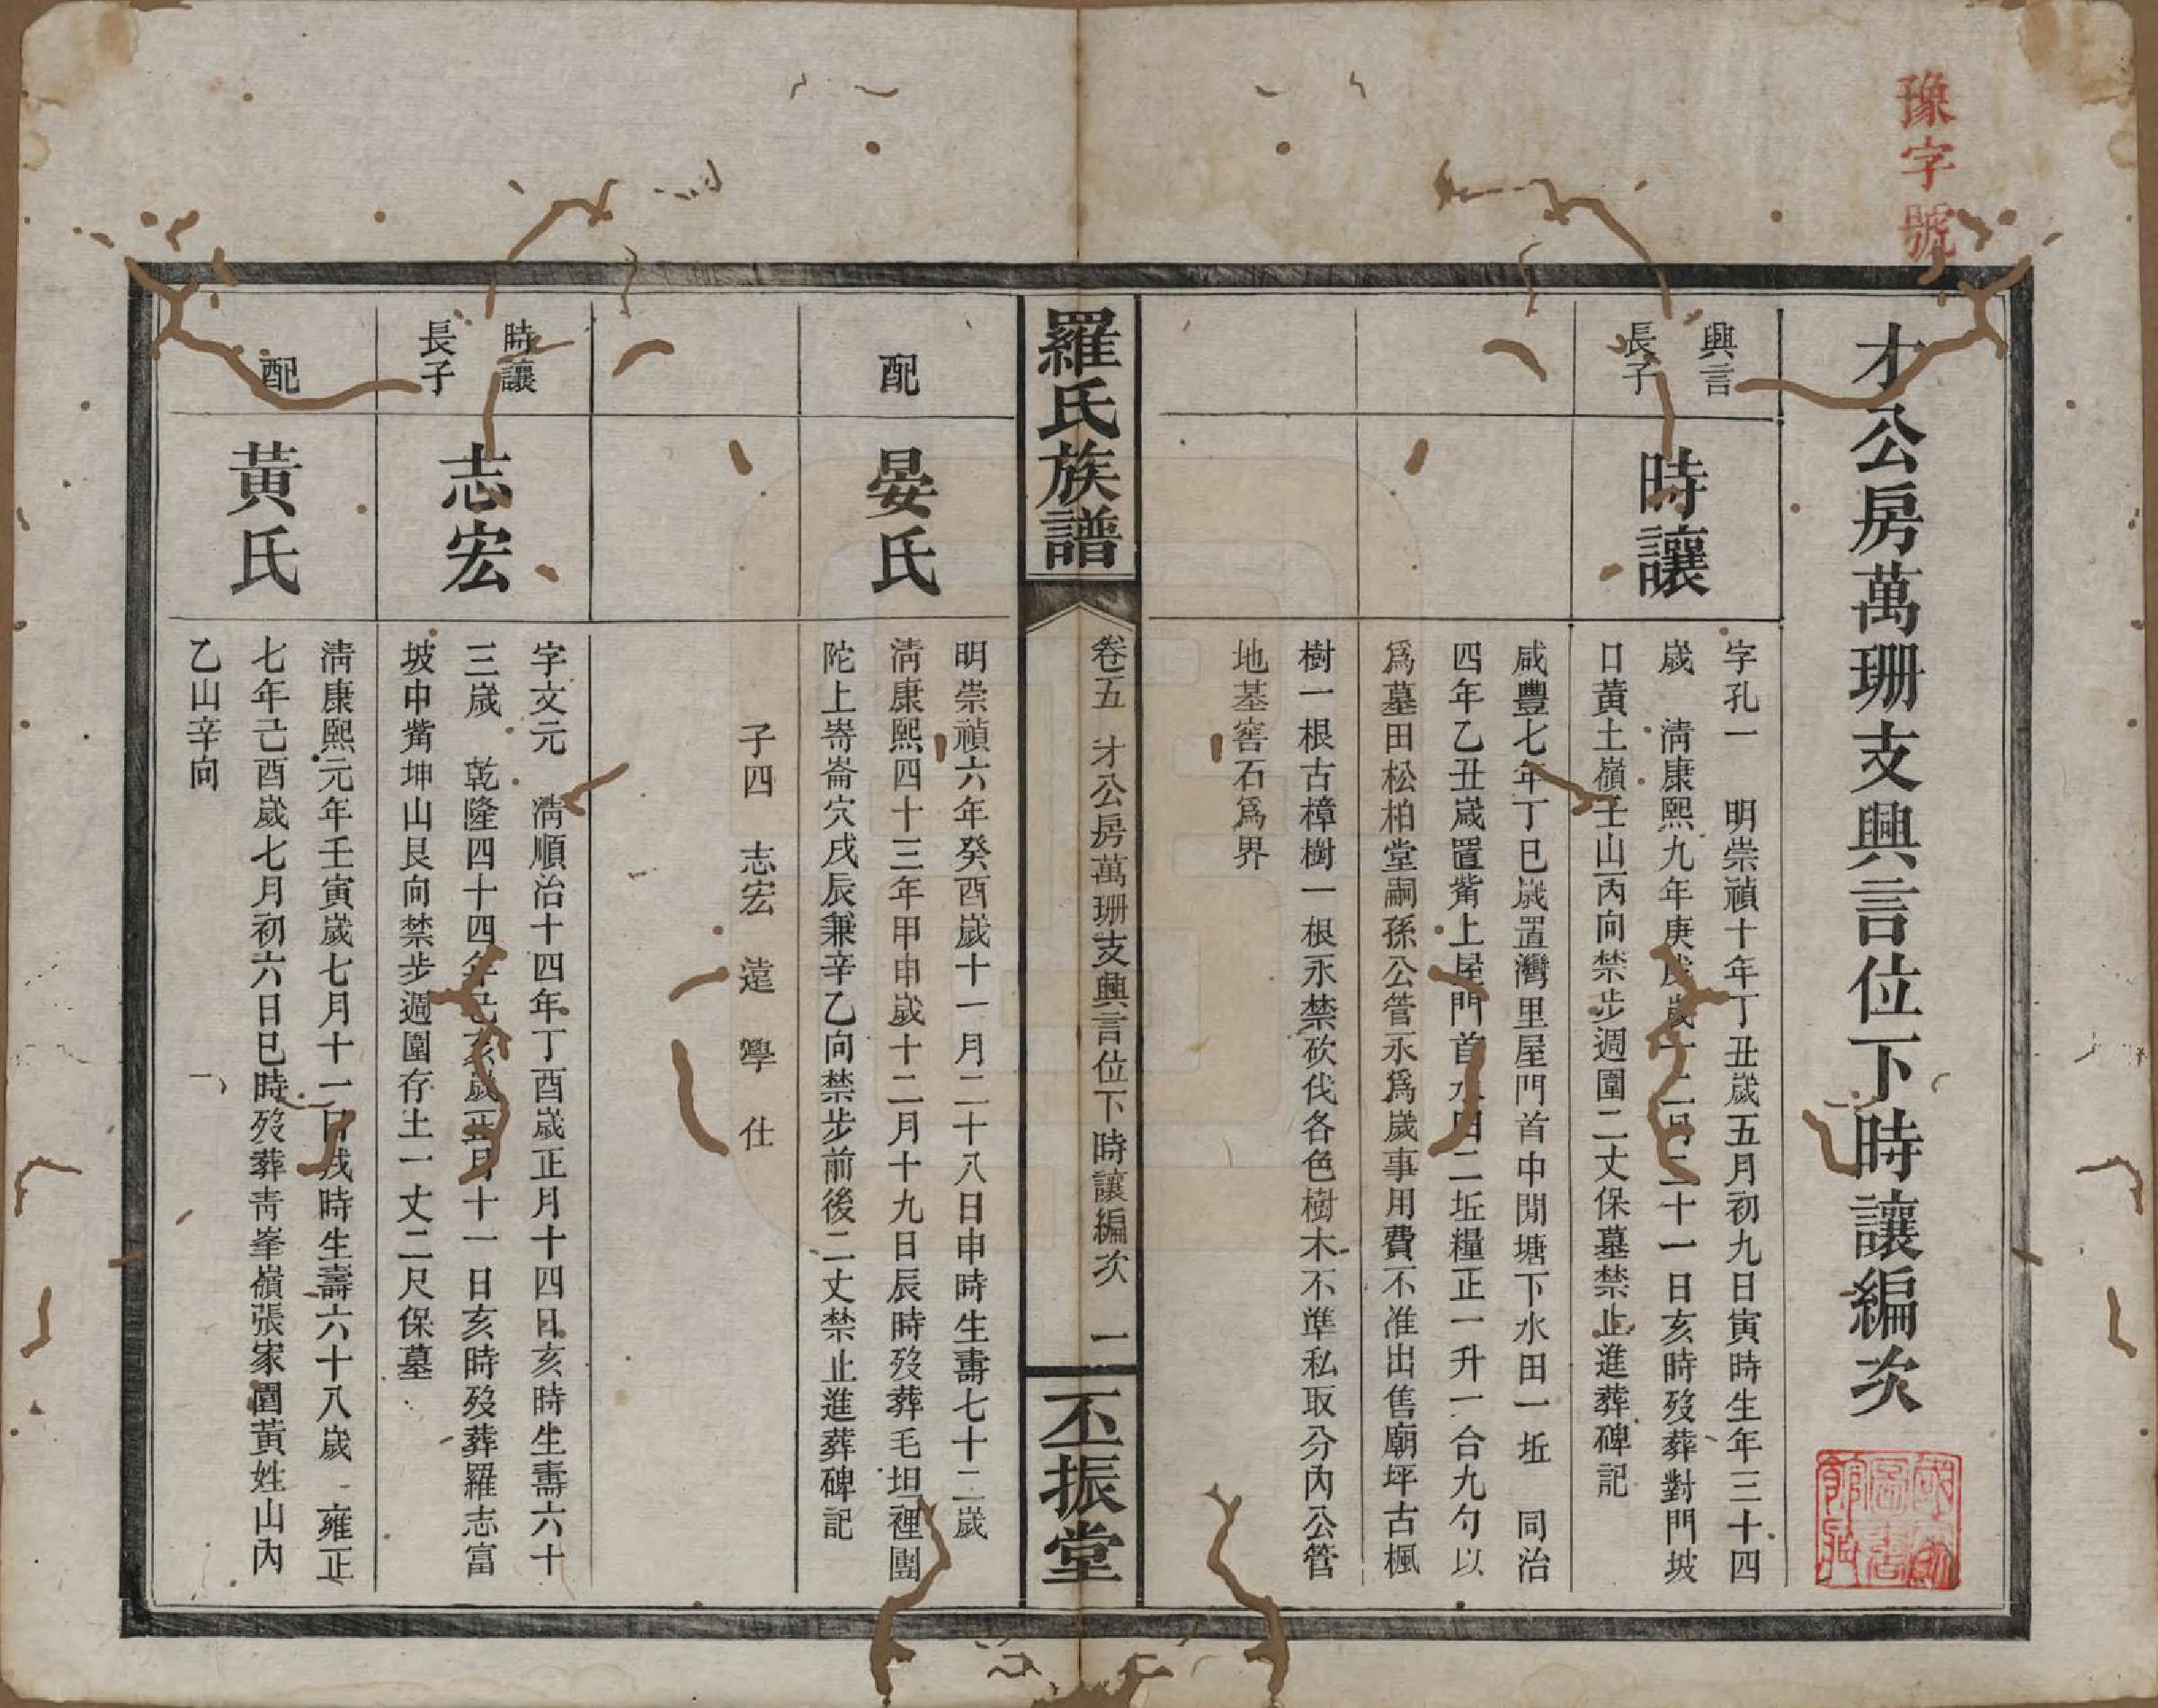 豫字號
才公房萬珊支興言位下時讓編次
興言
長子
時讓
字孔一 明崇禎十年丁丑歲五月初九日寅時生年三十四
歲 淸康熙九年庚戌歲十二月二十一日亥時歿葬對門坡
口黃土嶺壬山丙向禁步週圍二丈保墓禁止進葬碑記
咸豐七年丁巳歲置灣里屋門首中閒塘下水田一坵 同治
四年乙丑歲置觜上屋門首水田二坵糧正一升一合九勺以
爲墓田松柏堂嗣孫公管永爲歲事用費不准出售廟坪古楓
樹一根古樟樹一根永禁砍伐各色樹木不準私取分內公管
地基窖石爲界
羅氏族譜
卷五 才公房萬珊支興言位下時讓編次 一
丕振堂
配
晏氏
明崇禎六年癸酉歲十一月二十八日申時生壽七十二歲
淸康熙四十三年甲申歲十二月十九日辰時歿葬毛坦裡團
陀上崙穴戌辰兼辛乙向禁步前後二丈禁止進葬碑記
子四 志宏 遠 學 仕
時讓
長子
志宏
字文元 淸順治十四年丁酉歲正月十四日亥時生壽六十
三歲 乾隆四十四年己亥歲正月十一日亥時歿葬羅志富
坡中觜坤山艮向禁步週圍存土一丈二尺保墓
配
黃氏
淸康熙元年壬寅歲七月十一日戌時生壽六十八歲 雍正
七年己酉歲七月初六日巳時歿葬靑峯嶺張家園黃姓山內
乙山辛向